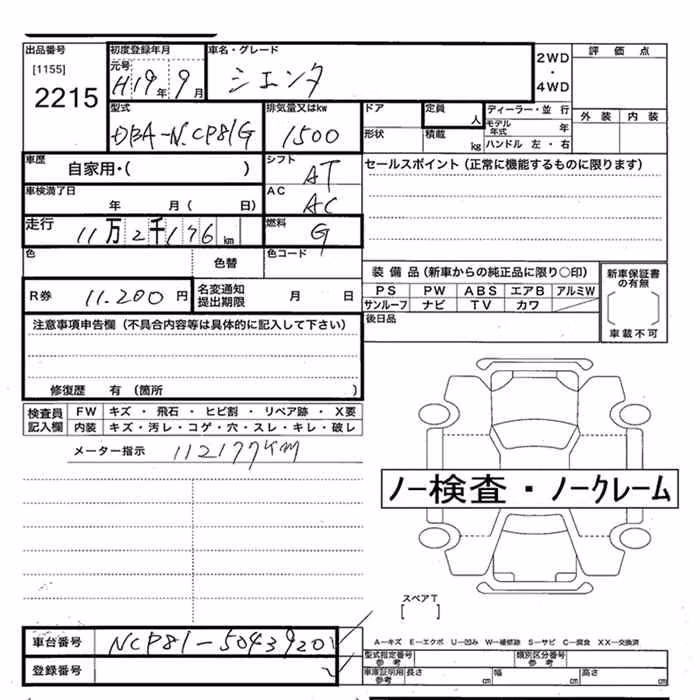 出品番号
[1155]
2215
初度登録年月
元号
H19年 9月
車名・グレード
シエンタ
2WD
・
4WD
評価点
外装 内装
型式
DBA-NCP81G
排気量又はkw
1500
ドア
形状
定員
人
積載
kg
ディーラー・並 行
モデル年式 年
ハンドル 左・右
車歴
自家用・( )
シフト
AT
セールスポイント (正常に機能するものに限ります)
車検満了日
年 月( 日)
AC
AC
走行
11万2千176km
燃料
G
色
色替
色コード
装備品(新車からの純正品に限り○印)
PS PW ABS エアB アルミW
サンルーフ ナビ TV カワ
新車保証書の有無
[ ]
車載不可
R券 11.200 円
名変通知提出期限 月 日
後日品
注意事項申告欄(不具合内容等は具体的に記入して下さい)
修復歴 有(箇所 )
検査員記入欄
FW キズ・飛石・ヒビ割・リペア跡・X要
内装 キズ・汚レ・コゲ・穴・スレ・キレ・破レ
メーター指示 112177KM
ノー検査・ノークレーム
スペアT
[ ]
車台番号 NCP81-5043920
登録番号
A-キズ E-エクボ U-凹み W-補修跡 S-サビ C-腐食 XX-交換済
型式指定番号
参考
類別区分番号
参考
車庫証明用
参考
長さ cm 幅 cm 高さ cm